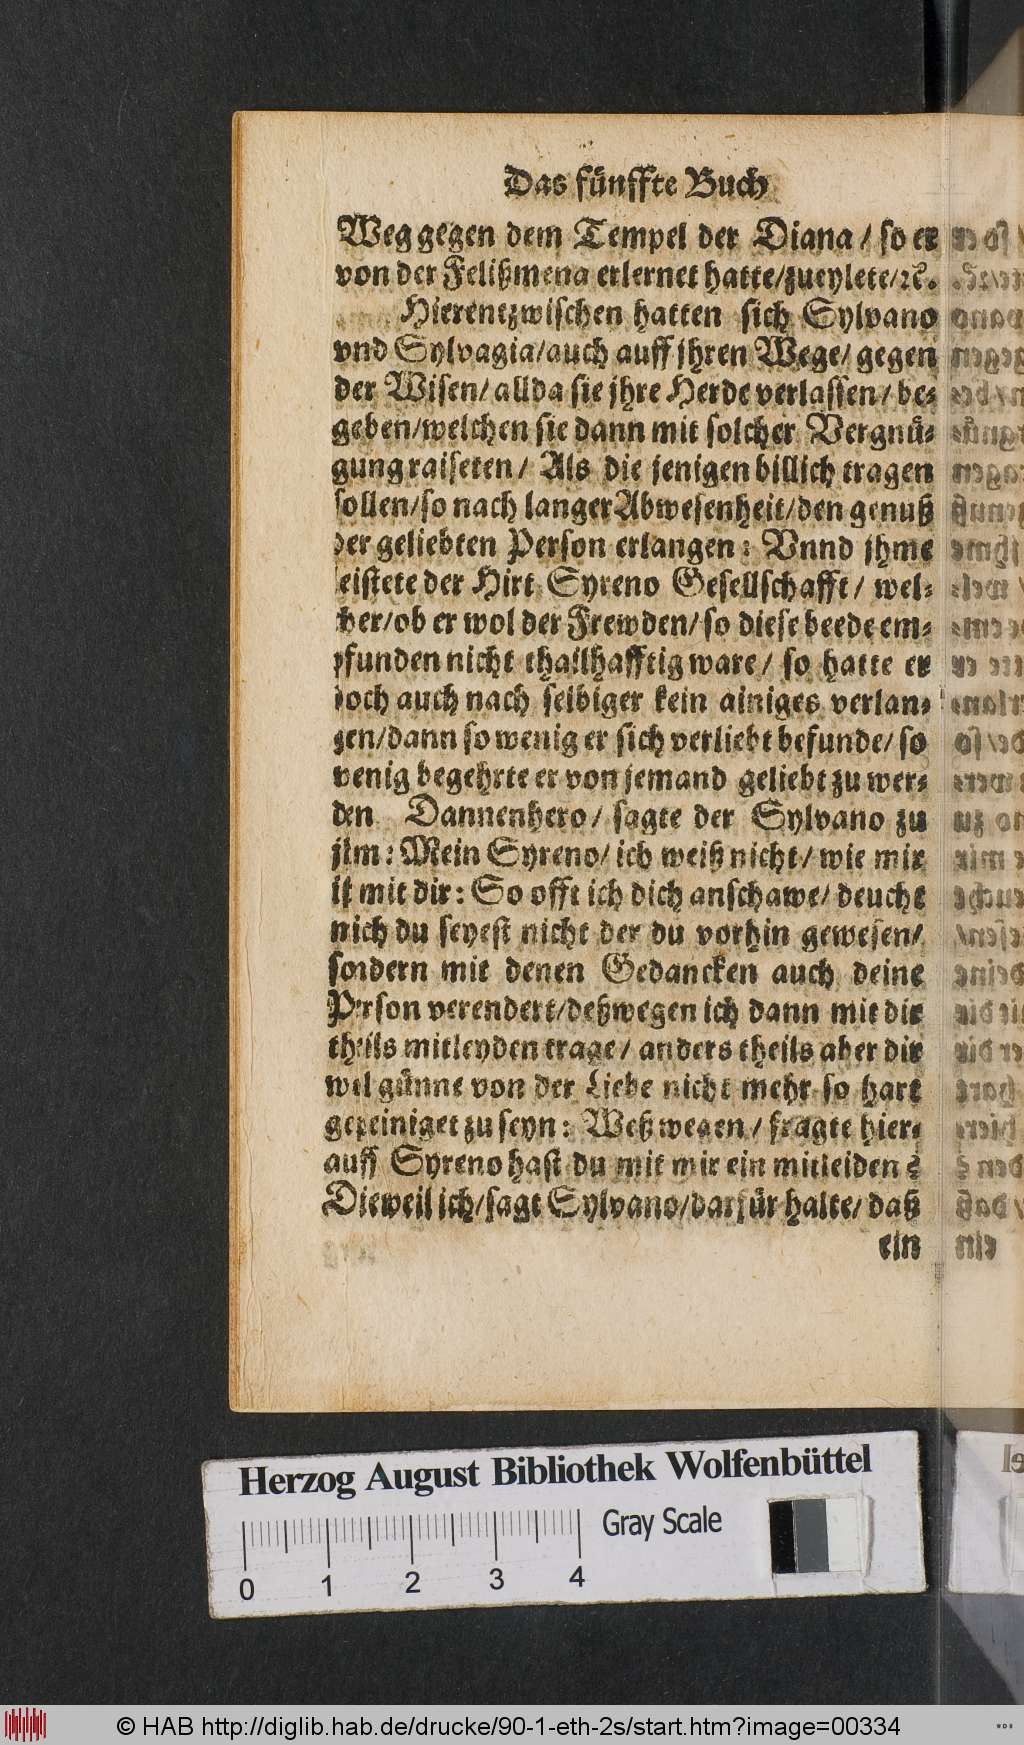 Das fünffte Buch
Weg gegen dem Tempel der Diana / so er
von der Felißmena erlernet hatte/zueylete/ꝛc.
Hierentzwischen hatten sich Sylvano
vnd Sylvagia/auch auff jhren Wege/ gegen
der Wisen/ allda sie jhre Herde verlassen/ be-
geben/welchen sie dann mit solcher Vergnü-
gung raiseten/ Als die jenigen billich tragen
sollen/so nach langer Abwesenheit/den genuß
der geliebten Person erlangen: Vnnd jhme
leistete der Hirt Syreno Gesellschafft/ wel-
cher/ob er wol der Frewden/ so diese beede em-
pfunden nicht thailhafftig ware/ so hatte er
doch auch nach selbiger kein ainiges verlan-
gen/dann so wenig er sich verliebt befunde/ so
wenig begehrte er von jemand geliebt zu wer-
den Dannenhero/ sagte der Sylvano zu
jhm: Mein Syreno/ ich weiß nicht/ wie mir
ist mit dir: So offt ich dich anschawe/ deucht
mich du seyest nicht der du vorhin gewesen/
sondern mit denen Gedancken auch deine
Person verendert/deßwegen ich dann mit dir
theils mitleyden trage/ anders theils aber dir
wol günne von der Liebe nicht mehr so hart
gepeiniget zu seyn: Weßwegen/ fragte hier-
auff Syreno hast du mit mir ein mitleiden?
Dieweil ich/sagt Sylvano/darfür halte/ daß
ein
Herzog August Bibliothek Wolfenbüttel
Gray Scale
0 1 2 3 4
© HAB http://diglib.hab.de/drucke/90-1-eth-2s/start.htm?image=00334